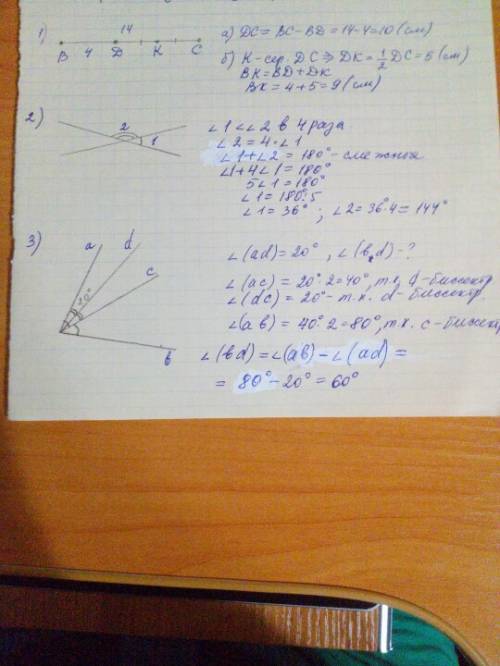 1) 14
B 4 D K C
а) DC = BC - BD = 14 - 4 = 10 (см)
б) K - сер. DC ⇒ DK = 1/2 DC = 5 (см)
BK = BD + DK
BK = 4 + 5 = 9 (см)
2) 2 1
∠1 < ∠2 в 4 раза
∠2 = 4·∠1
∠1 + ∠2 = 180° - смежные
∠1 + 4∠1 = 180°
5∠1 = 180°
∠1 = 180°:5
∠1 = 36° ; ∠2 = 36°·4 = 144°
3) a d c b 20°
∠(ad) = 20°, ∠(b,d) - ?
∠(ac) = 20°·2 = 40°, т.к. d - биссектр.
∠(dc) = 20° - т.к. d - биссектр.
∠(ab) = 40°·2 = 80°, т.к. c - биссектр
∠(bd) = ∠(ab) - ∠(ad) =
= 80° - 20° = 60°